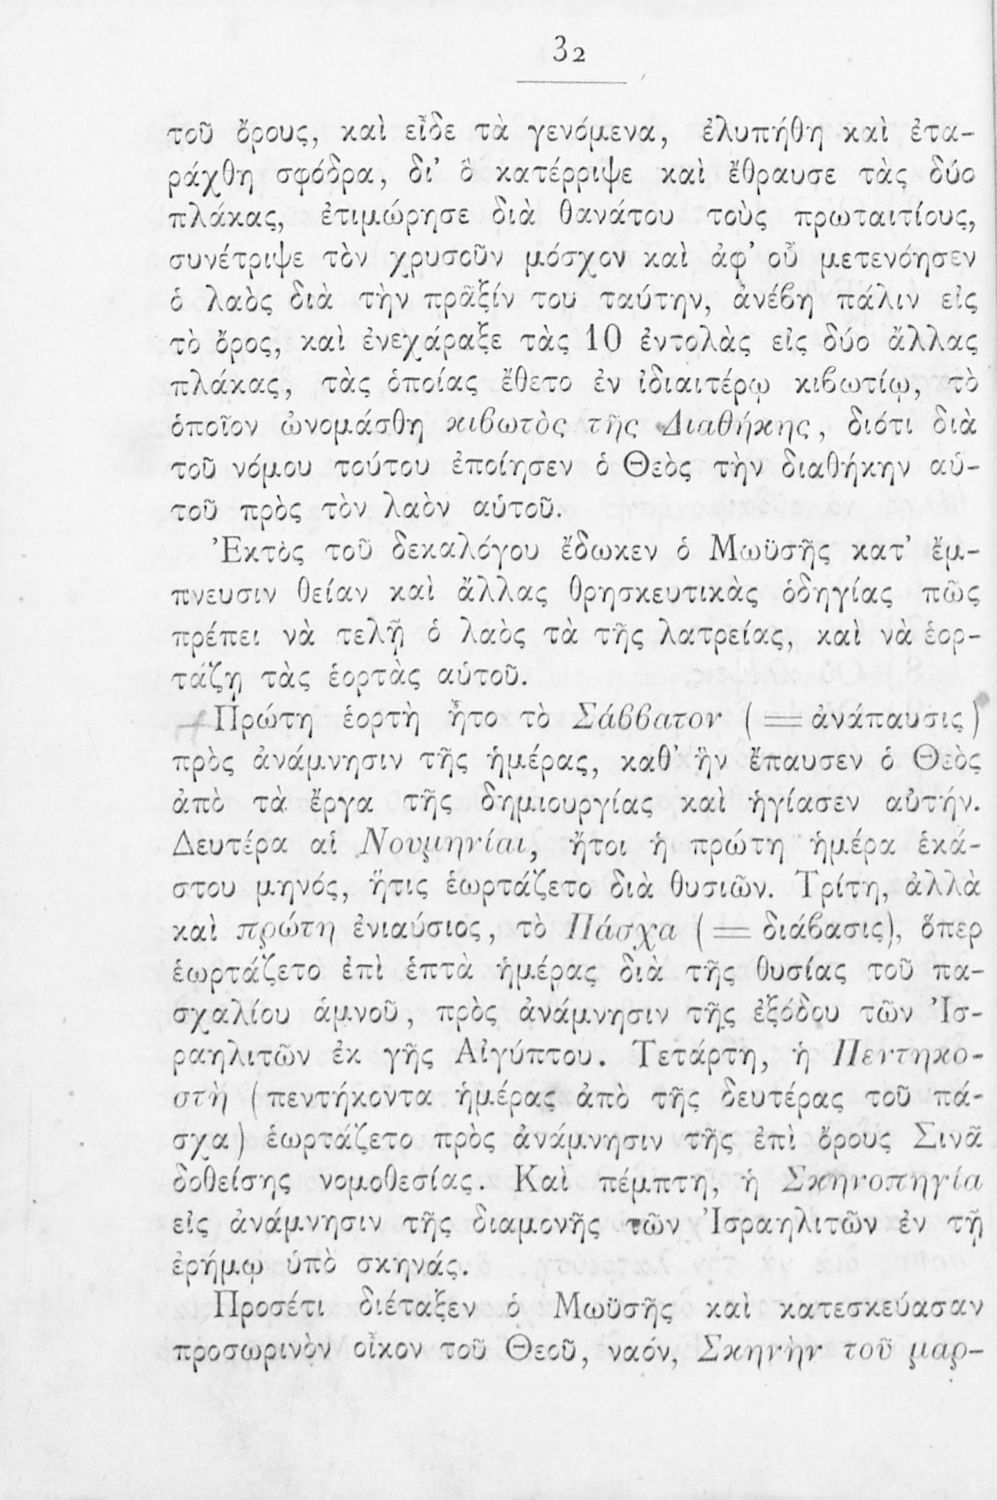 32
τοῦ ὄρους, καὶ εἶδε τὰ γενόμενα, ἐλυπήθη καὶ ἐτα-
ράχθη σφόδρα, δι’ ὃ κατέρριψε καὶ ἔθραυσε τὰς δύο
πλάκας, ἐτιμώρησε διὰ θανάτου τοὺς πρωταιτίους,
συνέτριψε τὸν χρυσοῦν μόσχον καὶ ἀφ’ οὗ μετενόησεν
ὁ λαὸς διὰ τὴν πρᾶξίν του ταύτην, ἀνέβη πάλιν εἰς
τὸ ὄρος, καὶ ἐνεχάραξε τὰς 10 ἐντολὰς εἰς δύο ἄλλας
πλάκας, τὰς ὁποίας ἔθετο ἐν ἰδιαιτέρῳ κιβωτίῳ, τὸ
ὁποῖον ὠνομάσθη κιβωτὸς τῆς Διαθήκης, διότι διὰ
τοῦ νόμου τούτου ἐποίησεν ὁ Θεὸς τὴν διαθήκην αὑ-
τοῦ πρὸς τὸν λαὸν αὑτοῦ.
Ἐκτὸς τοῦ δεκαλόγου ἔδωκεν ὁ Μωϋσῆς κατ’ ἔμ-
πνευσιν θείαν καὶ ἄλλας θρησκευτικὰς ὁδηγίας πῶς
πρέπει νὰ τελῇ ὁ λαὸς τὰ τῆς λατρείας, καὶ νὰ ἑορ-
τάζῃ τὰς ἑορτὰς αὑτοῦ.
Πρώτη ἑορτὴ ἦτο τὸ Σάββατον (= ἀνάπαυσις)
πρὸς ἀνάμνησιν τῆς ἡμέρας, καθ’ ἣν ἔπαυσεν ὁ Θεὸς
ἀπὸ τὰ ἔργα τῆς δημιουργίας καὶ ἡγίασεν αὐτήν.
Δευτέρα αἱ Νουμηνίαι, ἤτοι ἡ πρώτη ἡμέρα ἑκά-
στου μηνός, ἥτις ἑωρτάζετο διὰ θυσιῶν. Τρίτη, ἀλλὰ
καὶ πρώτη ἐνιαύσιος, τὸ Πάσχα (= διάβασις), ὅπερ
ἑωρτάζετο ἐπὶ ἑπτὰ ἡμέρας διὰ τῆς θυσίας τοῦ πα-
σχαλίου ἀμνοῦ, πρὸς ἀνάμνησιν τῆς ἐξόδου τῶν Ἰσ-
ραηλιτῶν ἐκ γῆς Αἰγύπτου. Τετάρτη, ἡ Πεντηκο-
στὴ (πεντήκοντα ἡμέρας ἀπὸ τῆς δευτέρας τοῦ πά-
σχα) ἑωρτάζετο πρὸς ἀνάμνησιν τῆς ἐπὶ ὄρους Σινᾶ
δοθείσης νομοθεσίας. Καὶ πέμπτη, ἡ Σκηνοπηγία
εἰς ἀνάμνησιν τῆς διαμονῆς τῶν Ἰσραηλιτῶν ἐν τῇ
ἐρήμῳ ὑπὸ σκηνάς.
Προσέτι διέταξεν ὁ Μωϋσῆς καὶ κατεσκεύασαν
προσωρινὸν οἶκον τοῦ Θεοῦ, ναόν, Σκηνὴν τοῦ μαρ-